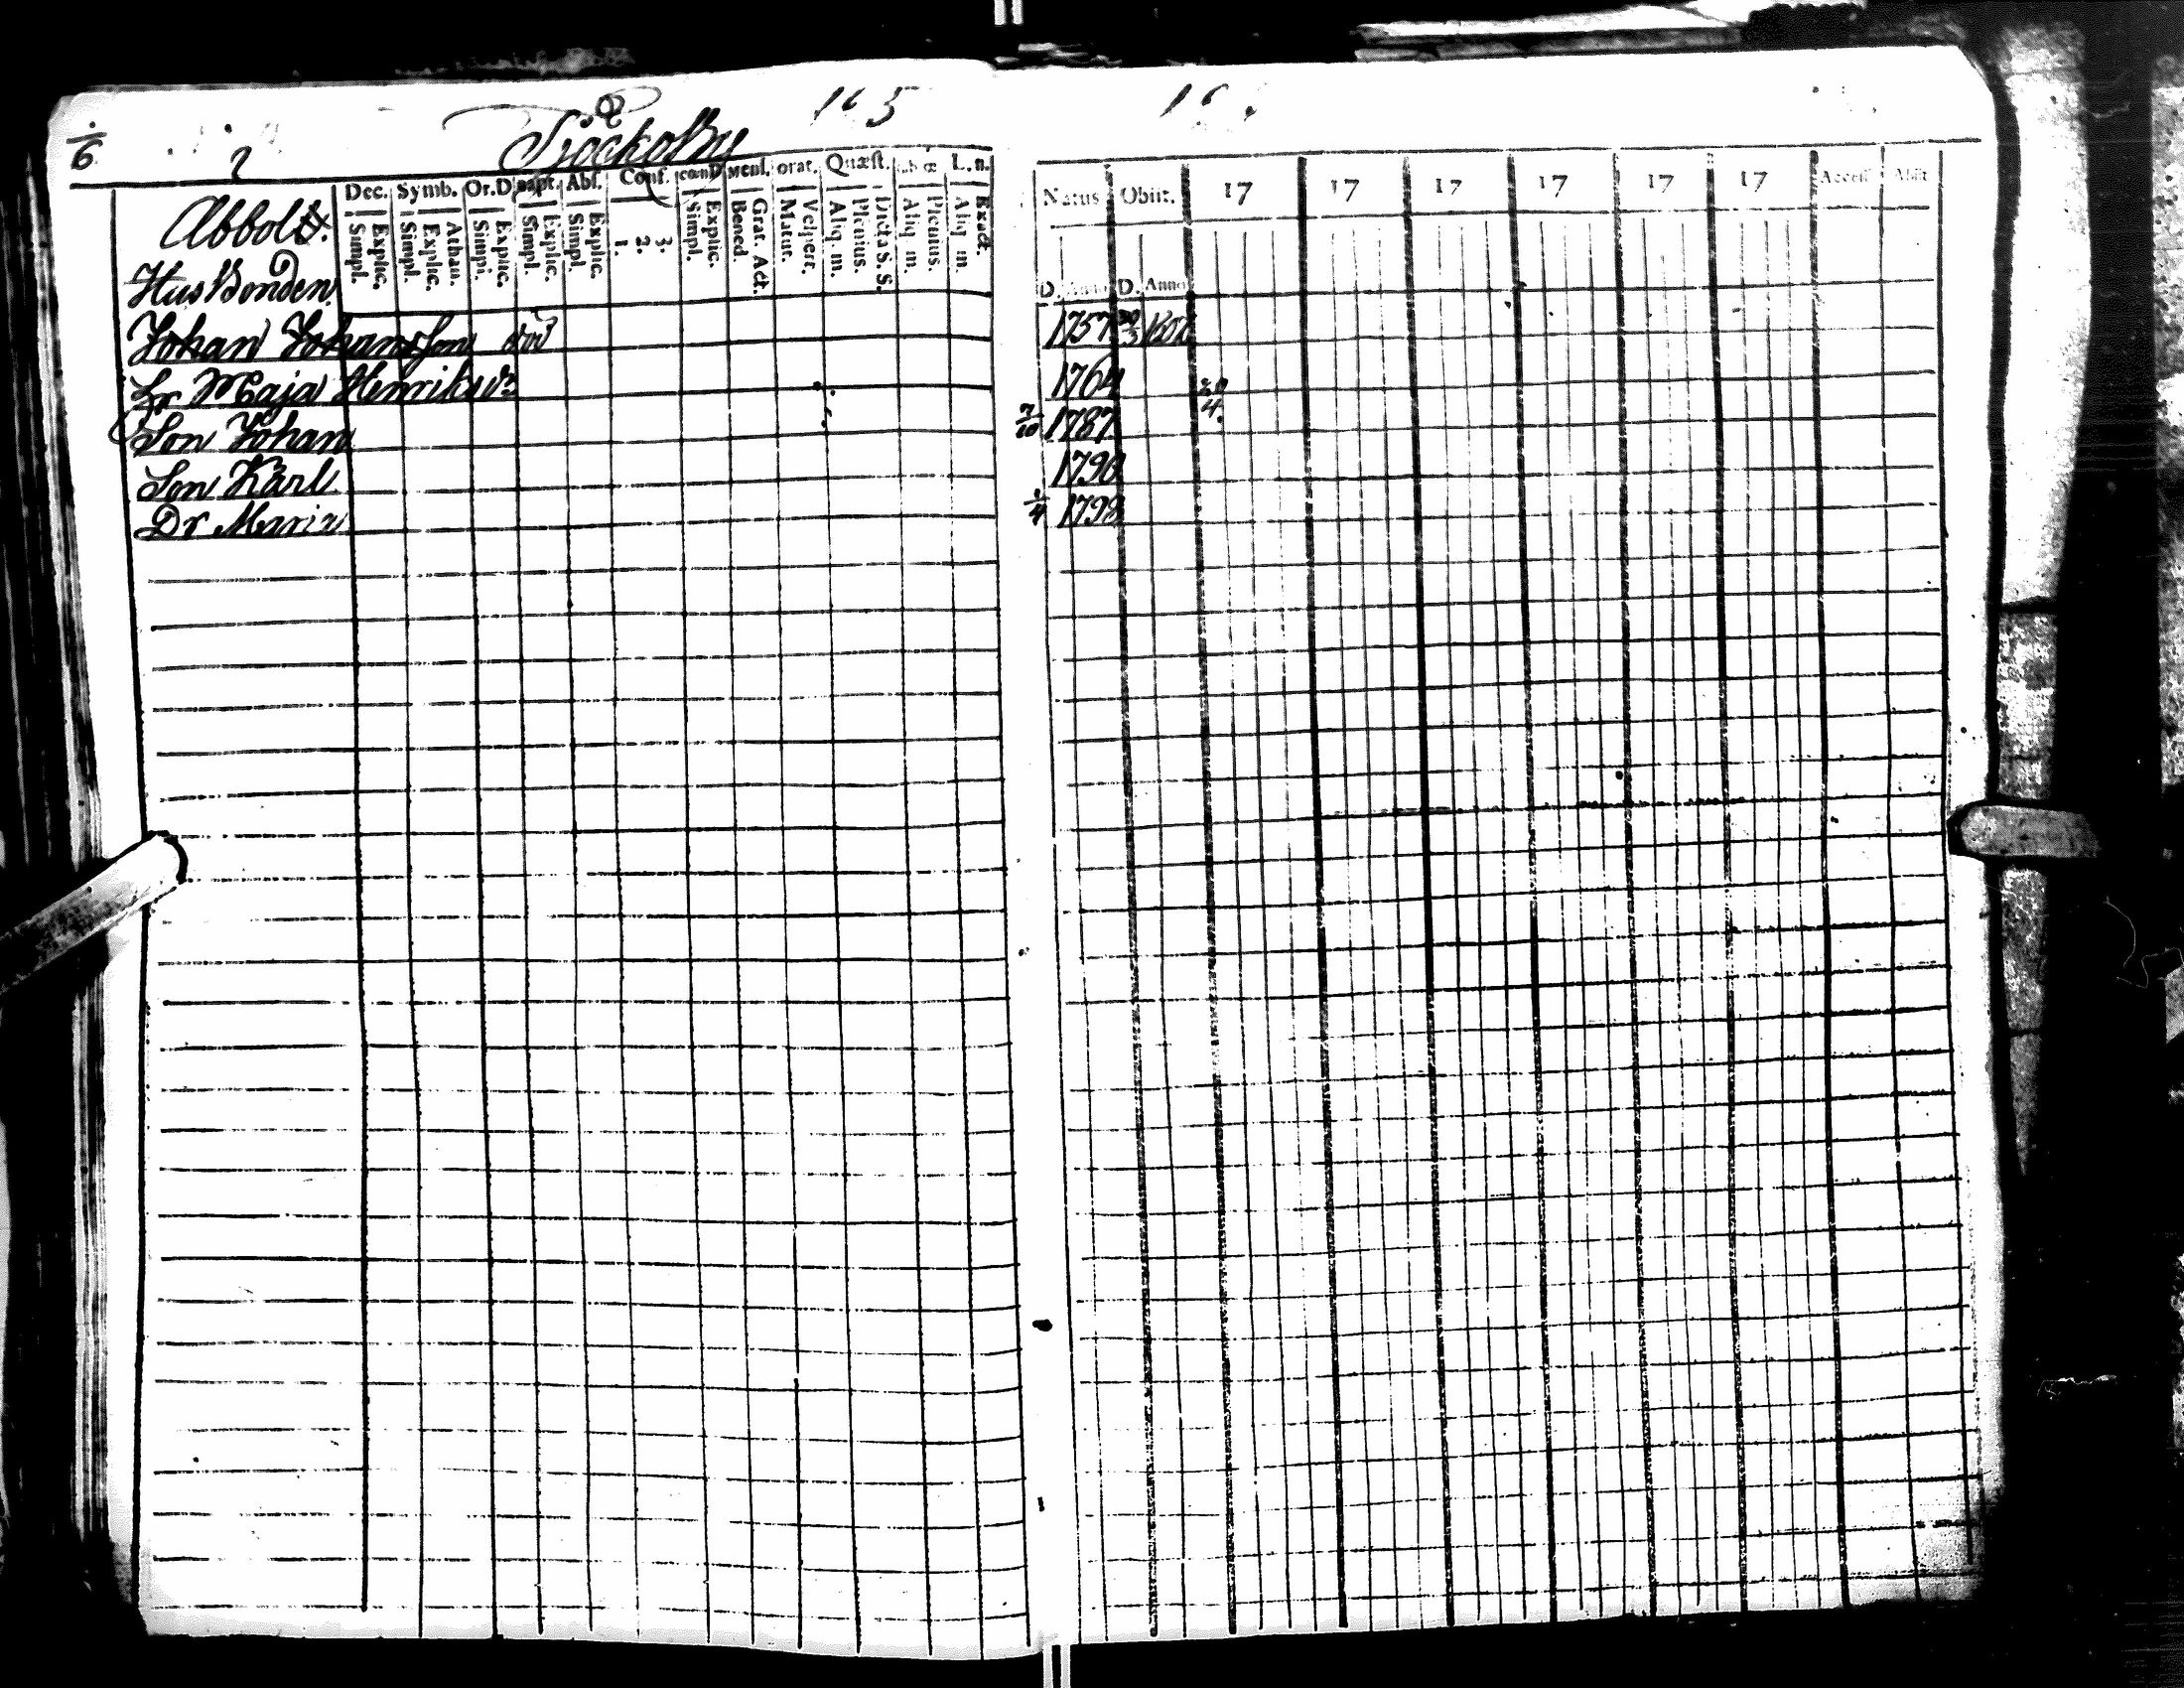 165
6
2
Sjöckolby
Dec. Symb. Or.D Bapt. Abs. Conf. cœnD Mens. orat. Quæst. L.n.
Simpl. Explic. Simpl. Explic. Athan. Simpl. Explic. Simpl. Explic. Simpl. Explic. 1. 2. 3. Simpl. Explic. Bened. Grat. Act. Matut. Vespert. Aliq. m. Plenius. Dicta S. S. Aliq. m. Plenius. Aliq. m. Exact.
Natus Obiit. 17 17 17 17 17 17 Access. Abiit
D. Anno D. Anno
Abbols.
Husbonden
Johan Johansson död 1757 30/3
Hr Maja Henriksdr 1764 20/4.
Son Johan 7/10 1787
Son Karl 1790
Dr Maria 1/4 1798